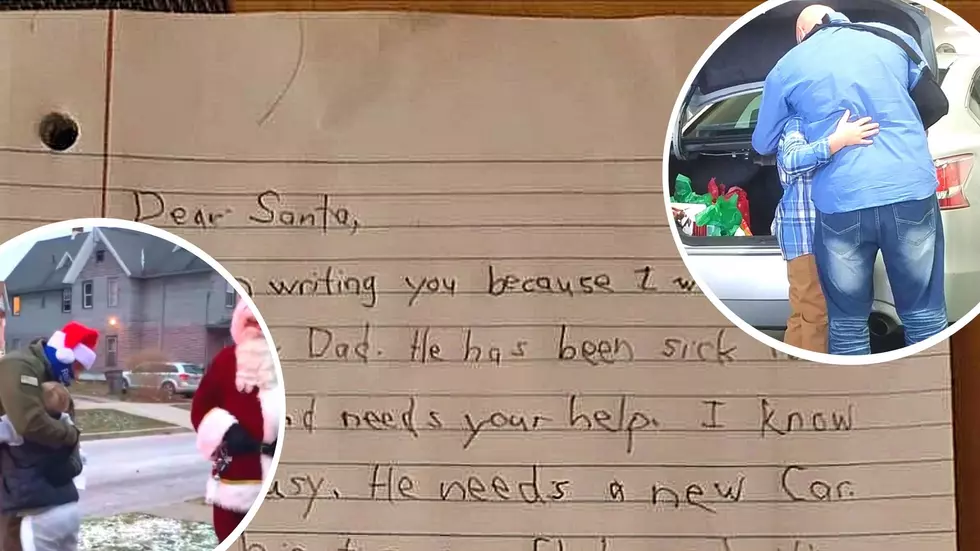 Dear Santa,
writing you because I w
Dad. He has been sick
needs your help. I know
He needs a new Car.